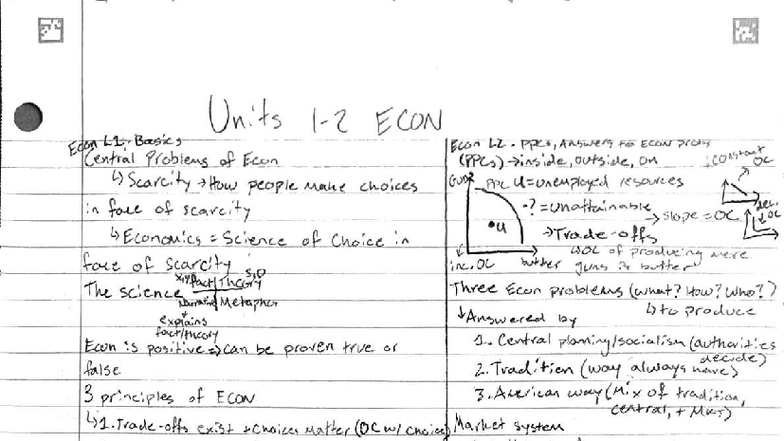 Units 1-2 ECON
Econ L1. Basics
Central Problems of Econ
↳ Scarcity → How people make choices
in face of scarcity
↳ Economics = Science of Choice in
face of scarcity
The science
x,y Fact Theory S,D
Narrative Metaphor
explains
fact/theory
Econ is positive ⇒ can be proven true or
false
3 principles of ECON
↳ 1. Trade-offs exist + Choices Matter (OC w/ choice)
Econ L2. PPCs, Answers to Econ probs
(PPCs) → inside, outside, on
Guns PPC U = unemployed resources
•? = unattainable
→ Trade-offs
→ slope = OC
•U
constant
OC
dec.
OC
↳ OC of producing more
inc. OC butter guns is butter
Three Econ problems (what? How? Who?)
↳ to produce
↓ Answered by
1. Central planning/socialism (authorities
decide)
2. Tradition (way always have)
3. American way (Mix of tradition,
central, + MKT)
Market system